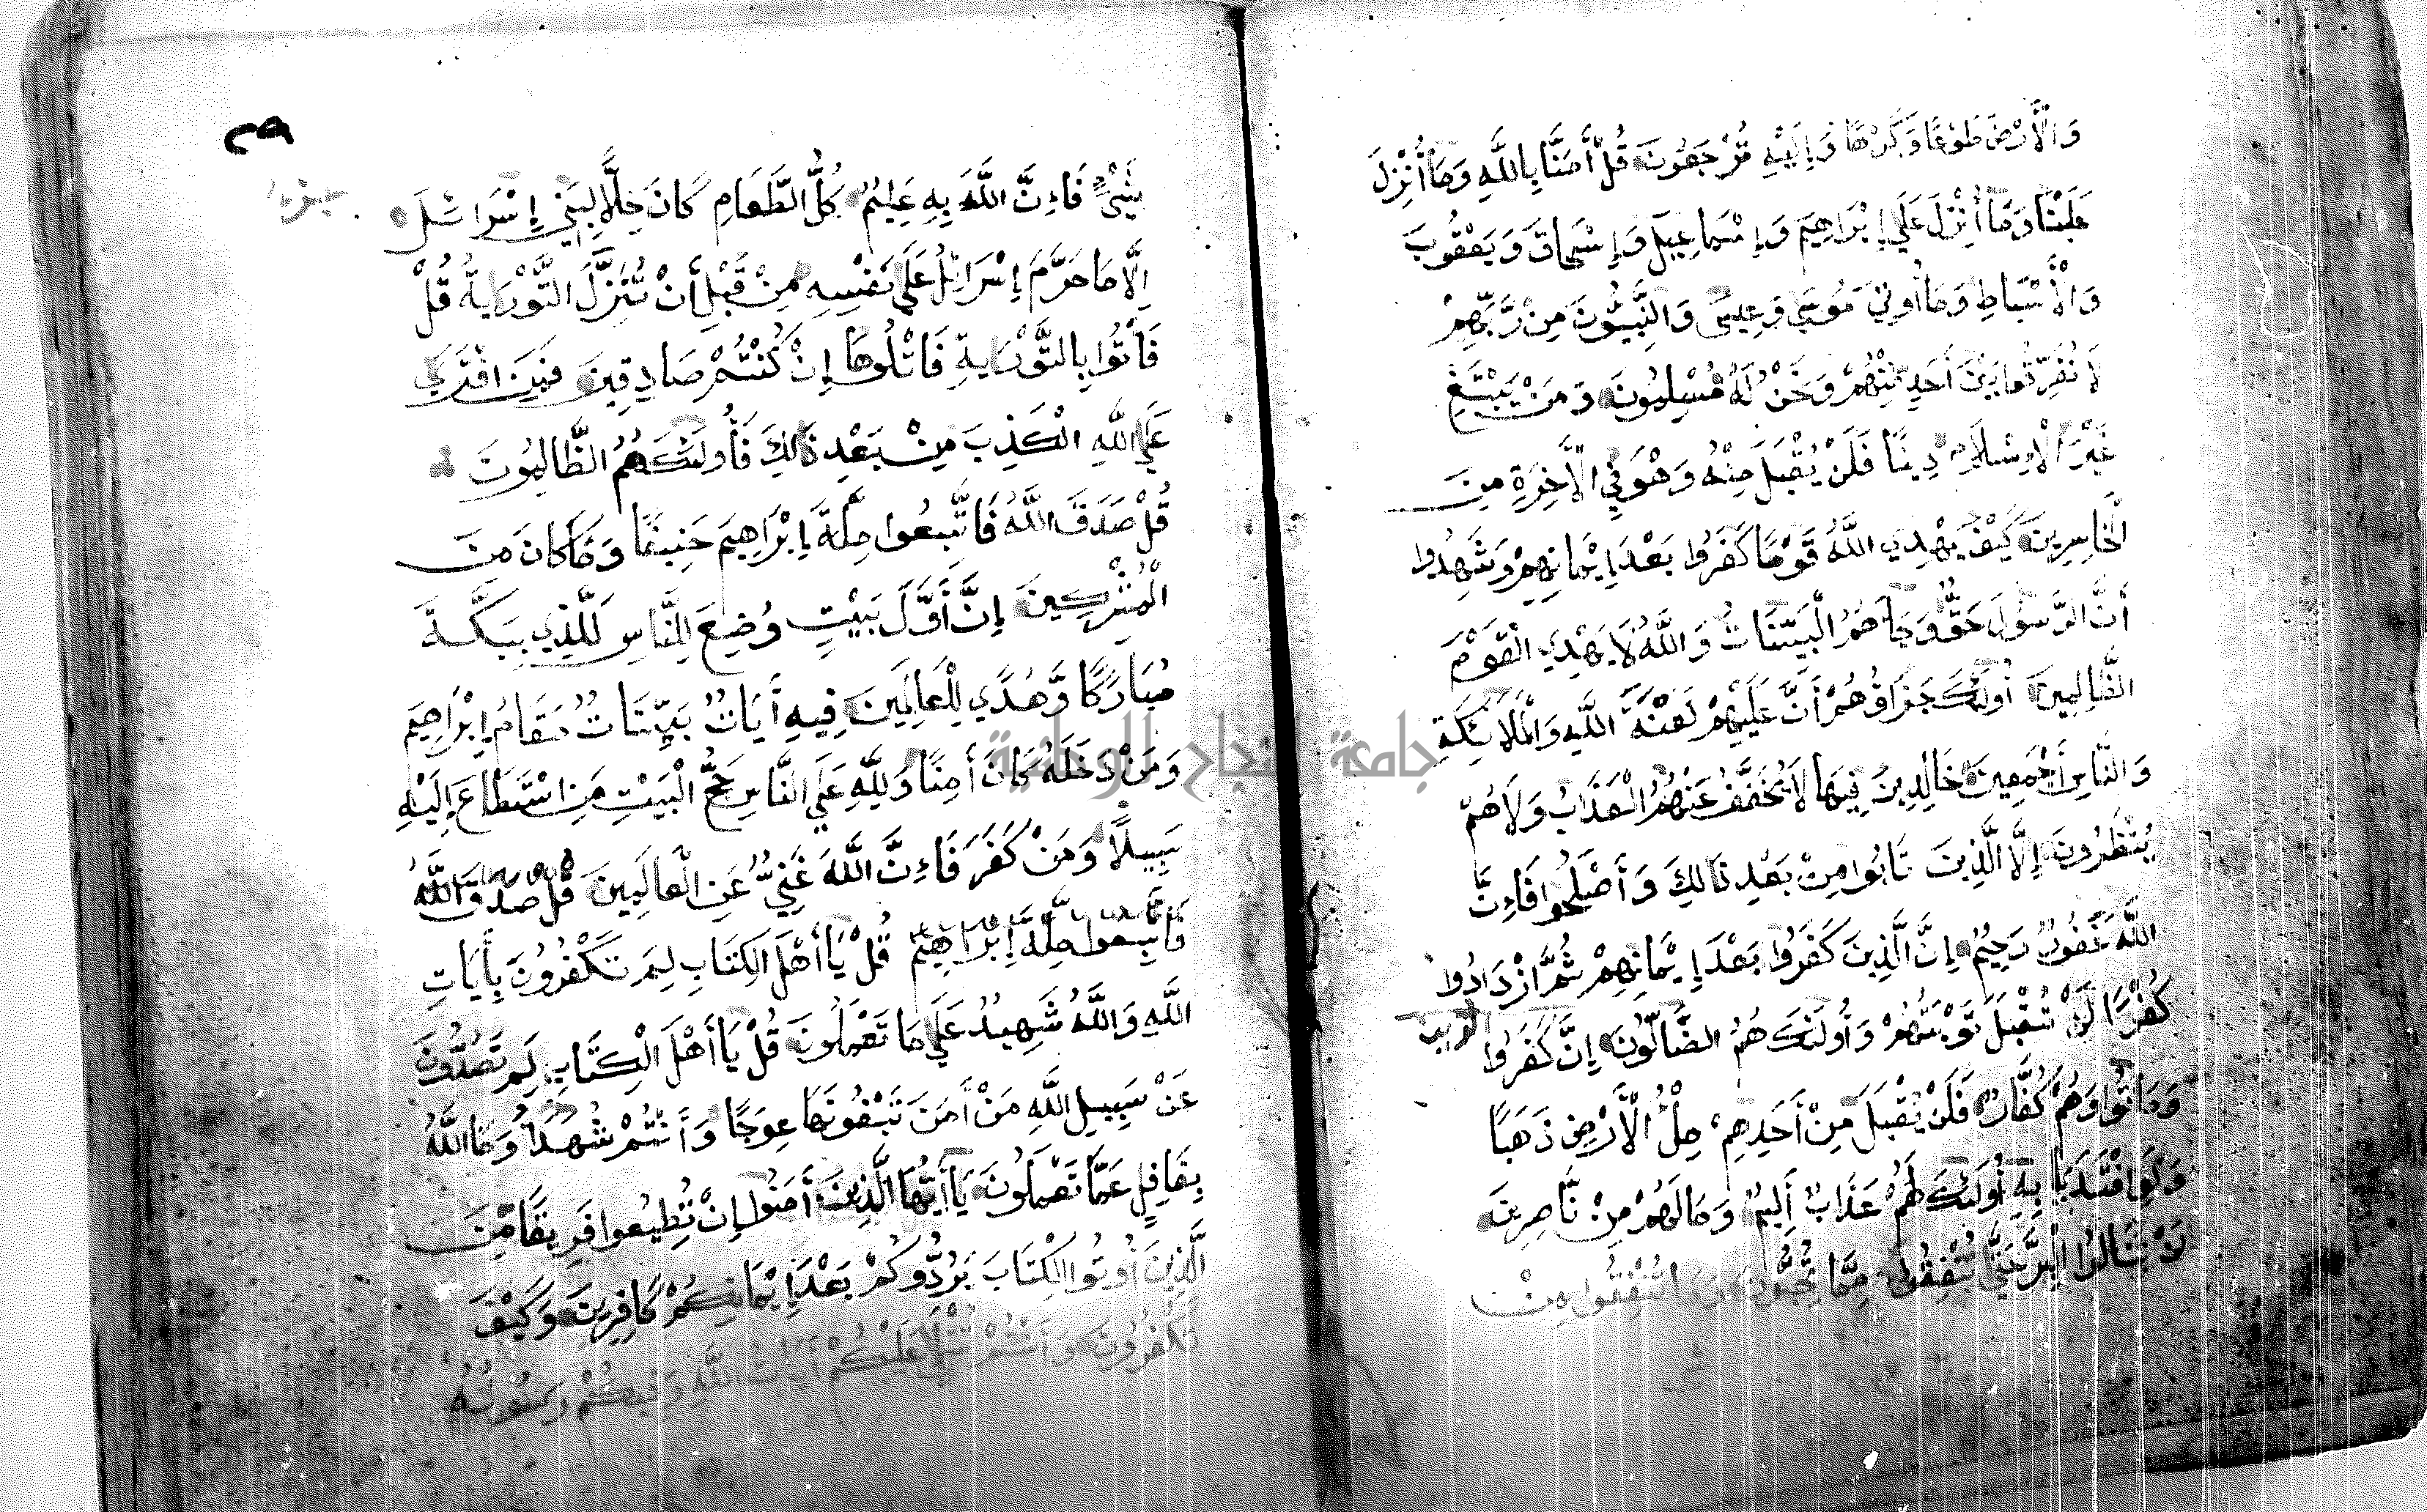 وَالْأَرْضِ طَوْعًا وَّكَرْهًا وَإِلَيْهِ تُرْجَعُونَ قُلْ أَمَنَّا بِاللَّهِ وَمَا أُنْزِلَ
عَلَيْنَا وَمَا أُنْزِلَ عَلَي إِبْرَاهِيمَ وَإِسْمَاعِيلَ وَإِسْحَاقَ وَيَعْقُوبَ
وَالْأَسْبَاطِ وَمَا أُوتِيَ مُوسَي وَعِيسَى وَالنَّبِيُّونَ مِنْ رَّبِّهِمْ
لَا نُفَرِّقُ بَيْنَ أَحَدٍ مِّنْهُمْ وَنَحْنُ لَهُ مُسْلِمُونَ وَمَنْ يَبْتَغِ
غَيْرَ الْإِسْلَامِ دِينًا فَلَنْ يُقْبَلَ مِنْهُ وَهْوَ فِي الْأَخِرَةِ مِنَ
الْخَاسِرِينَ كَيْفَ يَهْدِي اللَّهُ قَوْمًا كَفَرُوا بَعْدَ إِيْمَانِهِمْ وَشَهِدُوا
أَنَّ الرَّسُولَ حَقٌّ وَجَاَهُمُ الْبَيِّنَاتُ وَاللَّهُ لَا يَهْدِي الْقَوْمَ
الظَّالِمِينَ أُولَئِكَ جَزَاؤُهُمْ أَنَّ عَلَيْهِمْ لَعْنَةَ اللَّهِ وَالْمَلَائِكَةِ
وَالنَّاسِ أَجْمَعِينَ خَالِدِينَ فِيهَا لَا يُخَفَّفُ عَنْهُمُ الْعَذَابُ وَلَا هُمْ
يُنْظَرُونَ إِلَّا الَّذِينَ تَابُوا مِنْ بَعْدِ ذَالِكَ وَأَصْلَحُوا فَإِنَّ
اللَّهَ غَفُورٌ رَحِيمٌ إِنَّ الَّذِينَ كَفَرُوا بَعْدَ إِيْمَانِهِمْ ثُمَّ ازْدَادُوا
كُفْرًا لَنْ تُقْبَلَ تَوْبَتُهُمْ وَأُولَئِكَ هُمُ الضَّآلُّونَ إِنَّ كَفَرُوا
الذين
وَمَاتُوا وَهُمْ كُفَّارٌ فَلَنْ يُقْبَلَ مِنْ أَحَدِهِمْ مِلْءُ الْأَرْضِ ذَهَبًا
وَلَوِ افْتَدَي بِهِ أُولَئِكَ لَهُمْ عَذَابٌ أَلِيمٌ وَمَا لَهُمْ مِنْ نَّاصِرِينَ
لَنْ تَنَالُوا الْبِرَّ حَتَّي تُنْفِقُوا مِمَّا تُحِبُّونَ وَمَا تُنْفِقُوا مِنْ
٢٩
شَيْءٍ فَإِنَّ اللَّهَ بِهِ عَلِيمٌ كُلُّ الطَّعَامِ كَانَ حِلًّا لِبَنِي إِسْرَائِيلَ
إِلَّا مَا حَرَّمَ إِسْرَائِلُ عَلَي نَفْسِهِ مِنْ قَبْلِ أَنْ تُنَزَّلَ التَّوْرَايةُ قُلْ
فَأْتُوا بِالتَّوْرَايةِ فَاتْلُوهَا إِنْ كُنْتُمْ صَادِقِينَ فَمَنِ افْتَرَي
عَلَي اللَّهِ الْكَذِبَ مِنْ بَعْدِ ذَالِكَ فَأُولَئِكَ هُمُ الظَّالِمُونَ
قُلْ صَدَقَ اللَّهُ فَاتَّبِعُوا مِلَّةَ إِبْرَاهِيمَ حَنِيفًا وَمَا كَانَ مِنَ
الْمُشْرِكِينَ إِنَّ أَوَّلَ بَيْتٍ وُضِعَ لِلنَّاسِ لَلَّذِي بِبَكَّةَ
مُبَارَكًا وَّهُدًي لِلْعَالَمِينَ فِيهِ أَيَاتٌ بَيِّنَاتٌ مَقَامُ إِبْرَاهِيمَ
وَمَنْ دَخَلَهُ كَانَ أَمِنًا وَلِلَّهِ عَلَي النَّاسِ حَجُّ الْبَيْتِ مَنِ اسْتَطَاعَ إِلَيْهِ
سَبِيلًا وَمَنْ كَفَرَ فَإِنَّ اللَّهَ غَنِيٌّ عَنِ الْعَالَمِينَ قُلْ صَدَقَ اللَّهُ
فَاتَّبِعُوا مِلَّةَ إِبْرَاهِيمَ قُلْ يَا أَهْلَ الكِتَابِ لِمَ تَكْفُرُونَ بِأَيَاتِ
اللَّهِ وَاللَّهُ شَهِيدٌ عَلَي مَا تَعْمَلُونَ قُلْ يَا أَهْلَ الْكِتَابِ لِمَ تَصُدُّونَ
عَنْ سَبِيلِ اللَّهِ مَنْ أَمَنَ تَبْغُونَهَا عِوَجًا وَأَنْتُمْ شُهَدَاُ وَمَا اللَّهُ
بِغَافِلٍ عَمَّا تَعْمَلُونَ يَا أَيُّهَا الَّذِينَ أَمَنُوا إِنْ تُطِيعُوا فَرِيقًا مِّنَ
الَّذِينَ أُوتُوا الْكِتَابَ يَرُدُّوكُمْ بَعْدَ إِيْمَانِكُمْ كَافِرِينَ وَكَيْفَ
تَكْفُرُونَ وَأَنْتُمْ تُتْلَي عَلَيْكُمْ أَيَاتُ اللَّهِ وَفِيكُمْ رَسُولُهُ
جامعة النجاح الوطنية